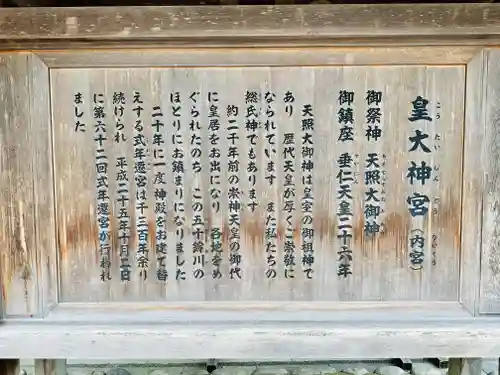 皇大神宮(内宮)
こうたいじんぐう
ないくう
御祭神 天照大御神
御鎮座 垂仁天皇二十六年
天照大御神は皇室の御祖神で
あり 歴代天皇が厚くご崇敬に
なられています また私たちの
総氏神でもあります
約二千年前の崇神天皇の御代
に皇居をお出になり 各地をめ
ぐられたのち この五十鈴川の
ほとりにお鎮まりになりました
二十年に一度神殿をお建て替
えする式年遷宮は千三百年余り
続けられ 平成二十五年十月二日
に第六十二回式年遷宮が行われ
ました